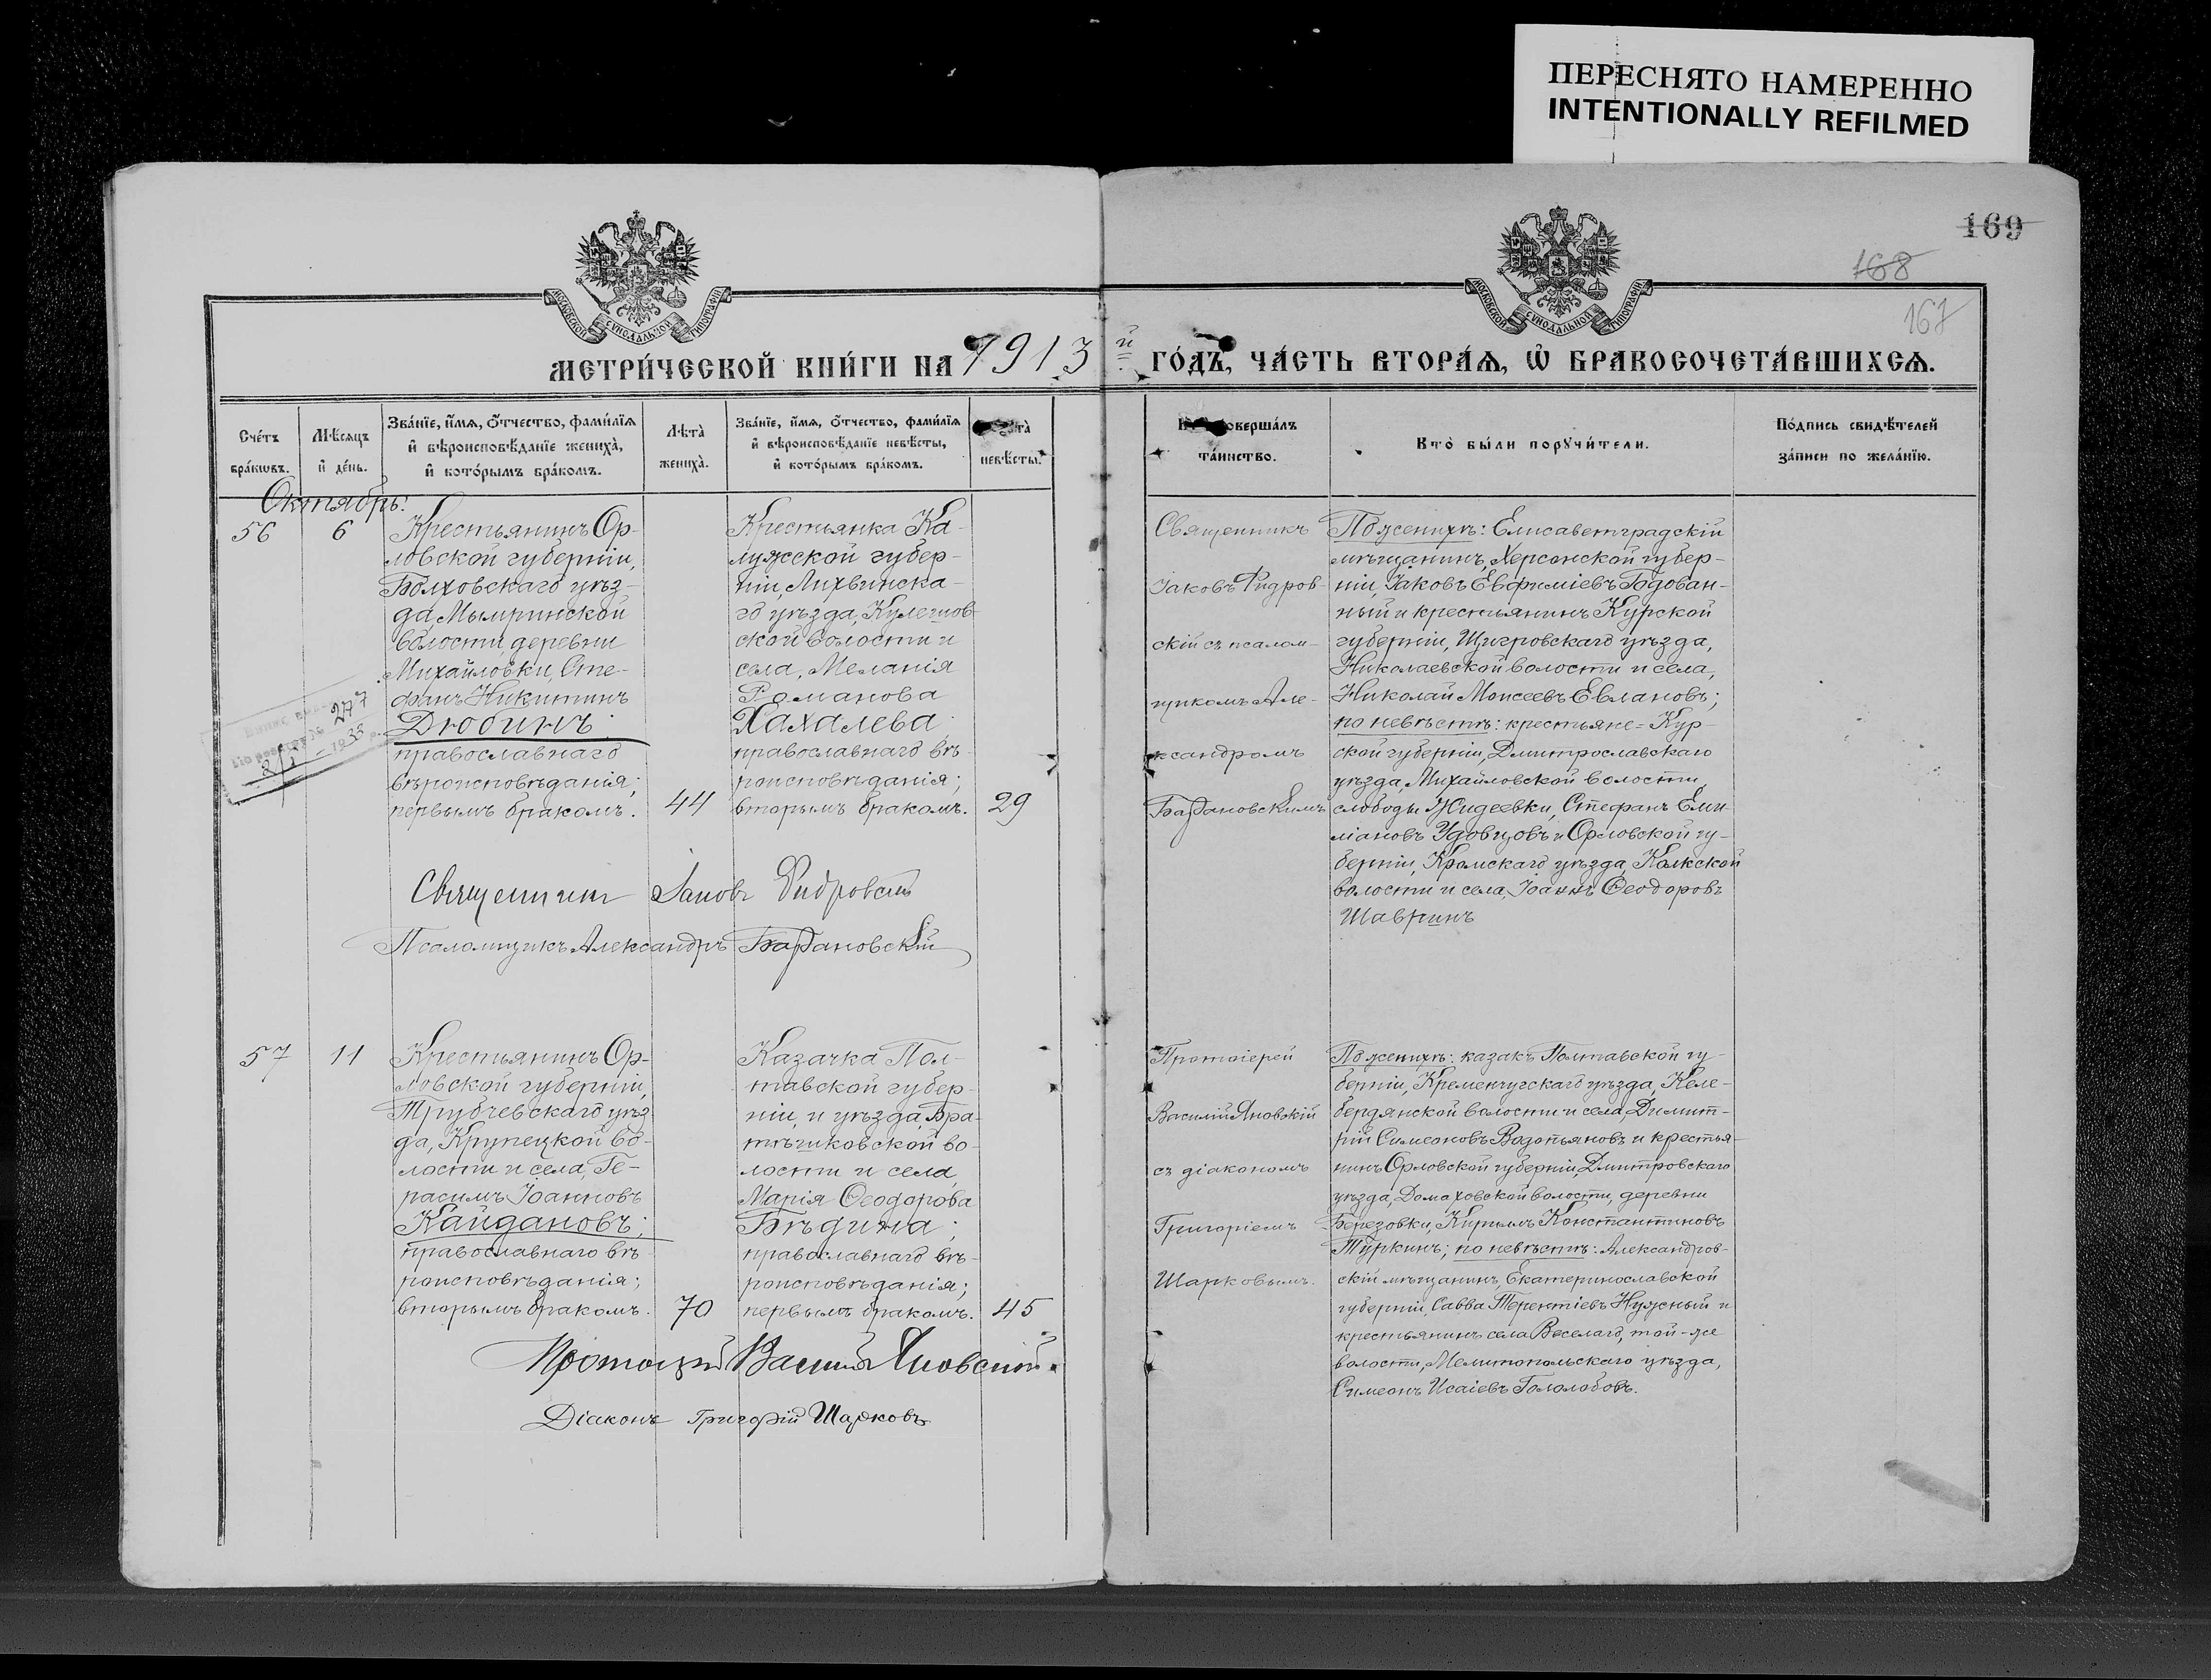 ПЕРЕСНЯТО НАМЕРЕННО
INTENTIONALLY REFILMED
169
168
167
МОСКОВСКОЙ СУНОДАЛЬНОЙ ТИПОГРАФІИ
МОСКОВСКОЙ СУНОДАЛЬНОЙ ТИПОГРАФІИ
МЕТРИ́ЧЕСКОЙ КНИ́ГИ НА 1913 й ГО́ДЪ, ЧА́СТЬ ВТОРА́Ѧ, Ѡ҆ БРАКОСОЧЕТА́ВШИХСѦ.
Сче́тъ
бра́кѡвъ.
Мѣ́сѧцъ
и҆ де́нь.
Зва́нїе, и҆́мѧ, ѻ҆́тчество, фами́лїѧ
и҆ вѣроисповѣ́данїе жениха̀,
и҆ кото́рымъ бра́комъ.
Лѣ́та̀
жениха̀.
Зва́нїе, и҆́мѧ, ѻ҆́тчество, фами́лїѧ
и҆ вѣроисповѣ́данїе невѣ́сты,
и҆ кото́рымъ бра́комъ.
невѣ́сты.
соверша́лъ
та́инство.
Кто̀ бы́ли порꙋчи́тели.
По́дпись свидѣ́телей
за́писи по жела́нїю.
Октябрь:
56
6
Крестьянинъ Ор-
ловской губерніи,
Болховскаго уѣз-
да, Мымринской
волости, деревни
Михайловки, Сте-
фанъ Никитинъ
Дюбинъ:
православнаго
вѣроисповѣданія;
первымъ бракомъ.
44
Крестьянка Ка-
лужской губер-
ніи, Лихвинска-
го уѣзда, Кулешов-
ской волости и
села, Меланія
Романова
Хахалева
православнаго вѣ-
роисповѣданія;
вторымъ бракомъ.
29
Священникъ
Іаковъ Фидров-
скій съ псалом-
щикомъ Але-
ксандромъ
Барановскимъ
По женихѣ: Елисаветградскій
мѣщанинъ, Херсонской губер-
ніи, Іаковъ Евфиміевъ Годован-
ный и крестьянинъ Курской
губерніи, Щигровскаго уѣзда,
Николаевской волости и села,
Николай Моисеевъ Евлановъ;
по невѣстѣ: крестьяне = Кур-
ской губерніи, Дмитрославскаго
уѣзда, Михайловской волости
слободы Жидеевки, Стефанъ Еми-
ліановъ Удовцовъ и Орловской гу-
берніи, Кромскаго уѣзда,
волости и села, Іоаннъ Ѳеодоровъ
Шавринъ
277
1933
Священникъ Іаковъ Фидровскій
Псаломщикъ Александръ Барановскій
57
11
Крестьянинъ Ор-
ловской губерніи,
Трубчевскаго уѣз-
да, Крупецкой во-
лости и села, Ге-
расимъ Іоанновъ
Кайдановъ;
православнаго вѣ-
роисповѣданія;
вторымъ бракомъ.
70
Казачка Пол-
тавской губер-
ніи, и уѣзда, Бра-
тѣшковской во-
лости и села,
Марія Ѳеодорова
Бѣдина;
православнаго вѣ-
роисповѣданія;
первымъ бракомъ.
45
Протоіерей
Василій Яновскій
съ діакономъ
Григоріемъ
Шарковымъ.
По женихѣ: казакъ Полтавской гу-
берніи, Кременчугскаго уѣзда, Келе-
бердянской волости и села, Димит-
рій Симеоновъ Водопьяновъ и крестья-
нинъ Орловской губерніи, Дмитровскаго
уѣзда, Домаховской волости, деревни
Березовки, Кириллъ Константиновъ
Туркинъ; по невѣстѣ: Александров-
скій мѣщанинъ, Екатеринославской
губерніи, Савва Терентіевъ Нужный и
крестьянинъ села Веселаго, той-же
волости, Мелитопольскаго уѣзда,
Симеонъ Исаіевъ Гололобовъ.
Протоіерей Василій Яновскій
Діаконъ Григорій Шарковъ